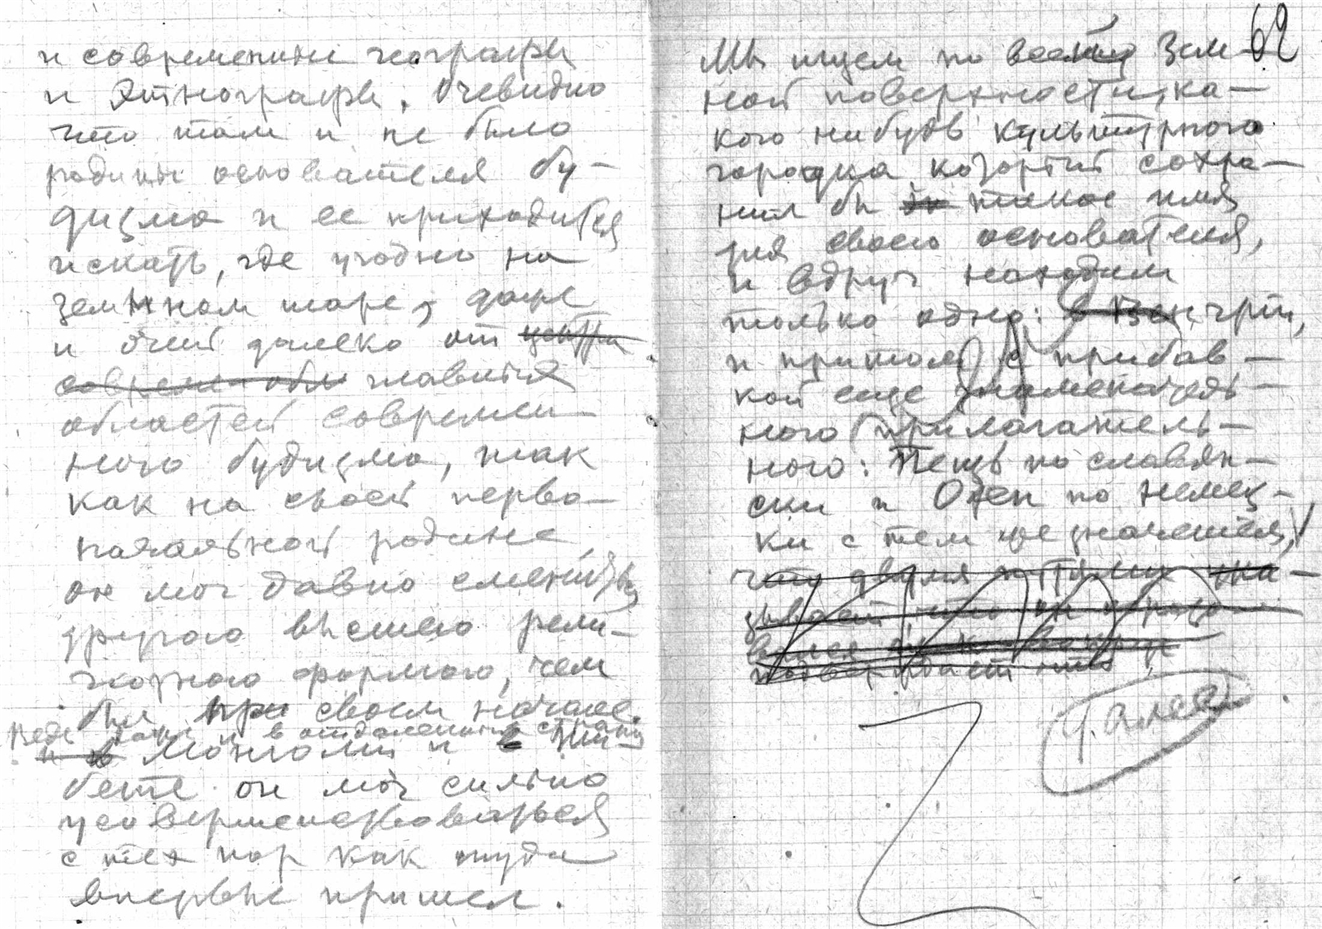 и современные географы
и Этнографы. Очевидно
что там и не было
родины основателя бу-
дизма и ее приходится
искать, где угодно на
земном шаре, даже
и очень далеко от центра
главных
областей современ-
ного будизма, так
как на своей перво-
начальной родине,
он мог давно сменится
другою высшею рели-
гиозною формою, чем
был при своем начале.
Ведь даже и в отдаленных странах
Монголии и в Ти-
бете он мог сильно
усовершенствоваться
с тех пор как туда
впервые пришел.
62
Мы ищем по всей Зем-
ной поверхности, ка-
кого нибудь культурного
городка который сохра-
нил бы такое имя
для своего основателя,
и вдруг находим
только одно: в Венгрии,
и притом с прибав-
кой еще знаменатель-
ного прилагатель-
ного: Пешт по славян-
ски и Офен по немец-
ки с тем же значением,
что двумя
подтверждает
Далее